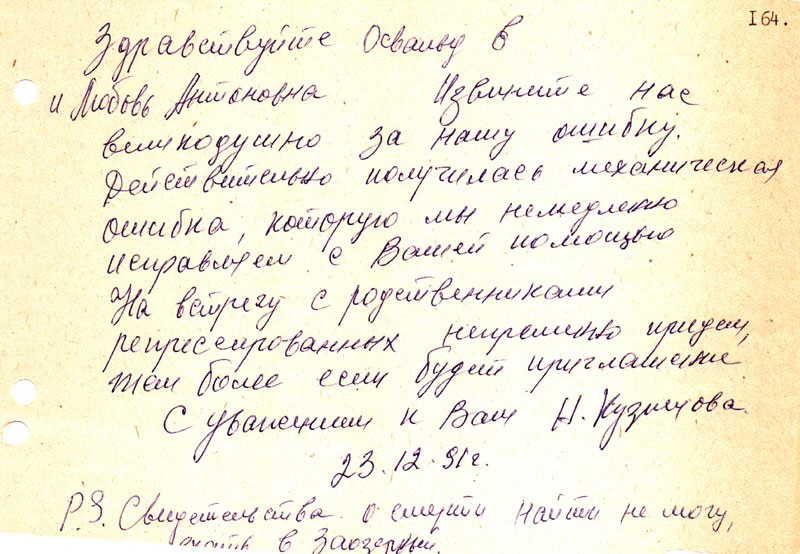 I64.
Здравствуйте Освальд В
и Любовь Антоновна Извините нас
великодушно за нашу ошибку.
Действительно получилась механическая
ошибка, которую мы немедленно
исправляем с Вашей помощью
На встречу с родственниками
репрессированных непременно придем,
тем более если будет приглашение
С уважением к Вам Н. Кузнецова
23.12.91г.
P.S. Свидетельства о смерти найти не могу,
в Заозерный.